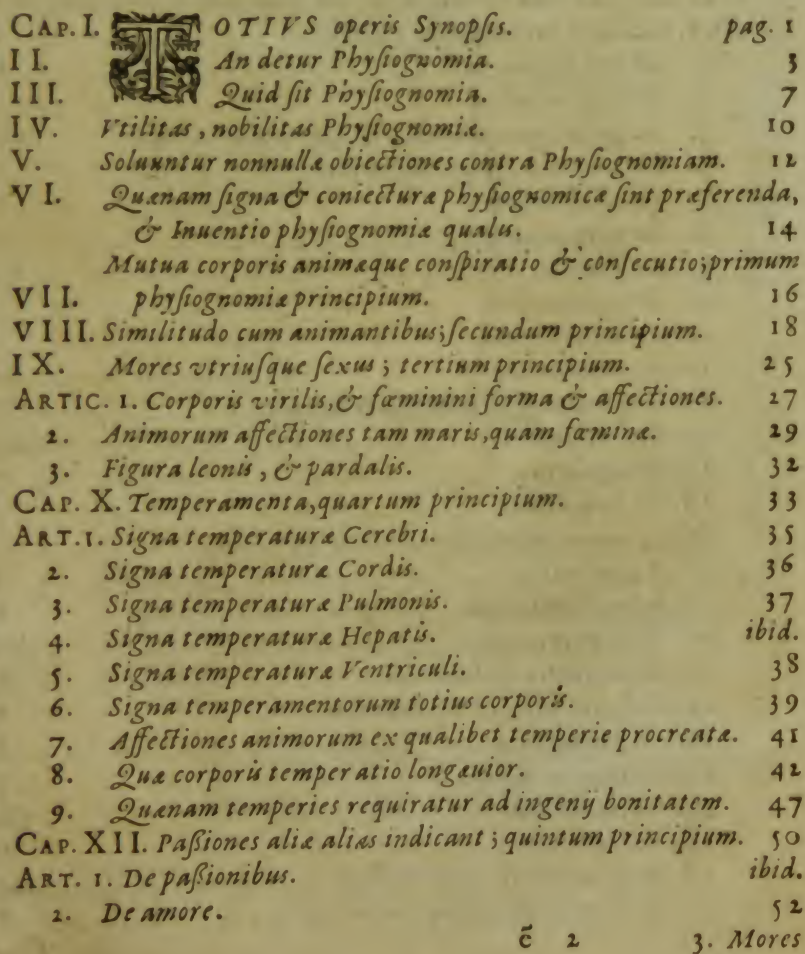 CAP. I. TOTIVS operis Synopſis. pag. 1
II. An detur Phyſiognomia. 3
III. Quid ſit Phyſiognomia. 7
IV. Vtilitas, nobilitas Phyſiognomiæ. 10
V. Soluuntur nonnullæ obiectiones contra Phyſiognomiam. 12
VI. Quænam ſigna & coniecturæ phyſiognomicæ ſint præferenda,
& Inuentio phyſiognomiæ qualis. 14
Mutua corporis animæque conſpiratio & conſecutio; primum
VII. phyſiognomiæ principium. 16
VIII. Similitudo cum animantibus; ſecundum principium. 18
IX. Mores vtriuſque ſexus; tertium principium. 25
ARTIC. 1. Corporis virilis, & fœminini forma & affectiones. 27
2. Animorum affectiones tam maris, quam fœminæ. 29
3. Figura leonis, & pardalis. 32
CAP. X. Temperamenta, quartum principium. 33
ART. 1. Signa temperaturæ Cerebri. 35
2. Signa temperaturæ Cordis. 36
3. Signa temperaturæ Pulmonis. 37
4. Signa temperaturæ Hepatis. ibid.
5. Signa temperaturæ Ventriculi. 38
6. Signa temperamentorum totius corporis. 39
7. Affectiones animorum ex qualibet temperie procreatæ. 41
8. Quæ corporis temperatio longæuior. 42
9. Quænam temperies requiratur ad ingenij bonitatem. 47
CAP. XII. Paſsiones aliæ alias indicant; quintum principium. 50
ART. 1. De paſsionibus. ibid.
2. De amore. 52
c̃ 2 3. Mores